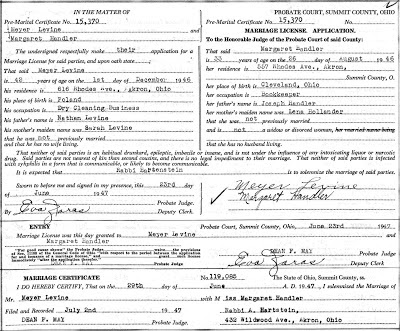 IN THE MATTER OF
Pre-Marital Certificate No. 15,370
Meyer Levine
and
Margaret Handler
The undersigned respectfully make their application for a
Marriage License for said parties, and upon oath state
That said Meyer Levine
is 42 years of age on the 1st day of December 1946
his residence is 616 Rhodes Ave., Akron, Ohio
his place of birth is Poland
his occupation is Dry Cleaning Business
his father's name is Nathan Levine
his mother's maiden name was Sarah Levine
that he was not previously married
and that he has no wife living.
PROBATE COURT, SUMMIT COUNTY, OHIO
Pre-Marital Certificate No. 15,370
MARRIAGE LICENSE APPLICATION.
To the Honorable Judge of the Probate Court of said County:
Margaret Handler
is 33 years of age on the 26 day of August 1946
her residence is 557 Rhodes Ave., Akron,
Summit County, O.
her place of birth is Cleveland, Ohio
her occupation is Bookkeeper
her father's name is Joseph Handler
her mother's maiden name was Lena Hollander
that she was not previously married
and is not a widow or divorced woman, her married name being
and that she has no husband living.
That neither of said parties is an habitual drunkard, epileptic, imbecile or insane, and is not under the influence of any intoxicating liquor or narcotic
drug. Said parties are not nearer of kin than second cousins, and there is no legal impediment to their marriage. That neither of said parties is infected
with syphilis in a form that is communicable, or likely to become communicable.
It is expected that Rabbi Hartenstein is to solemnize the marriage of said parties.
Sworn to before me and signed in my presence, this 23rd
day of June 1947
Probate Judge.
By Eva Zaras Deputy Clerk.
Meyer Levine
Margaret Handler
ENTRY
Probate Court, Summit County, Ohio, June 23rd 1947
Marriage License was this day granted to Meyer Levine
and Margaret Handler
DEAN F. MAY
Probate Judge
Eva Zaras
Deputy Clerk
MARRIAGE CERTIFICATE
No. 119,088 The State of Ohio, Summit County, ss.
I DO HEREBY CERTIFY, That on the 29th day of June A. D. 1947, I solemnized the marriage of
Mr. Meyer Levine with Miss Margaret Handler
Filed and Recorded July 2nd 1947
Rabbi A. Hartstein,
DEAN F. MAY Probate Judge.
432 Wildwood Ave., Akron, Ohio